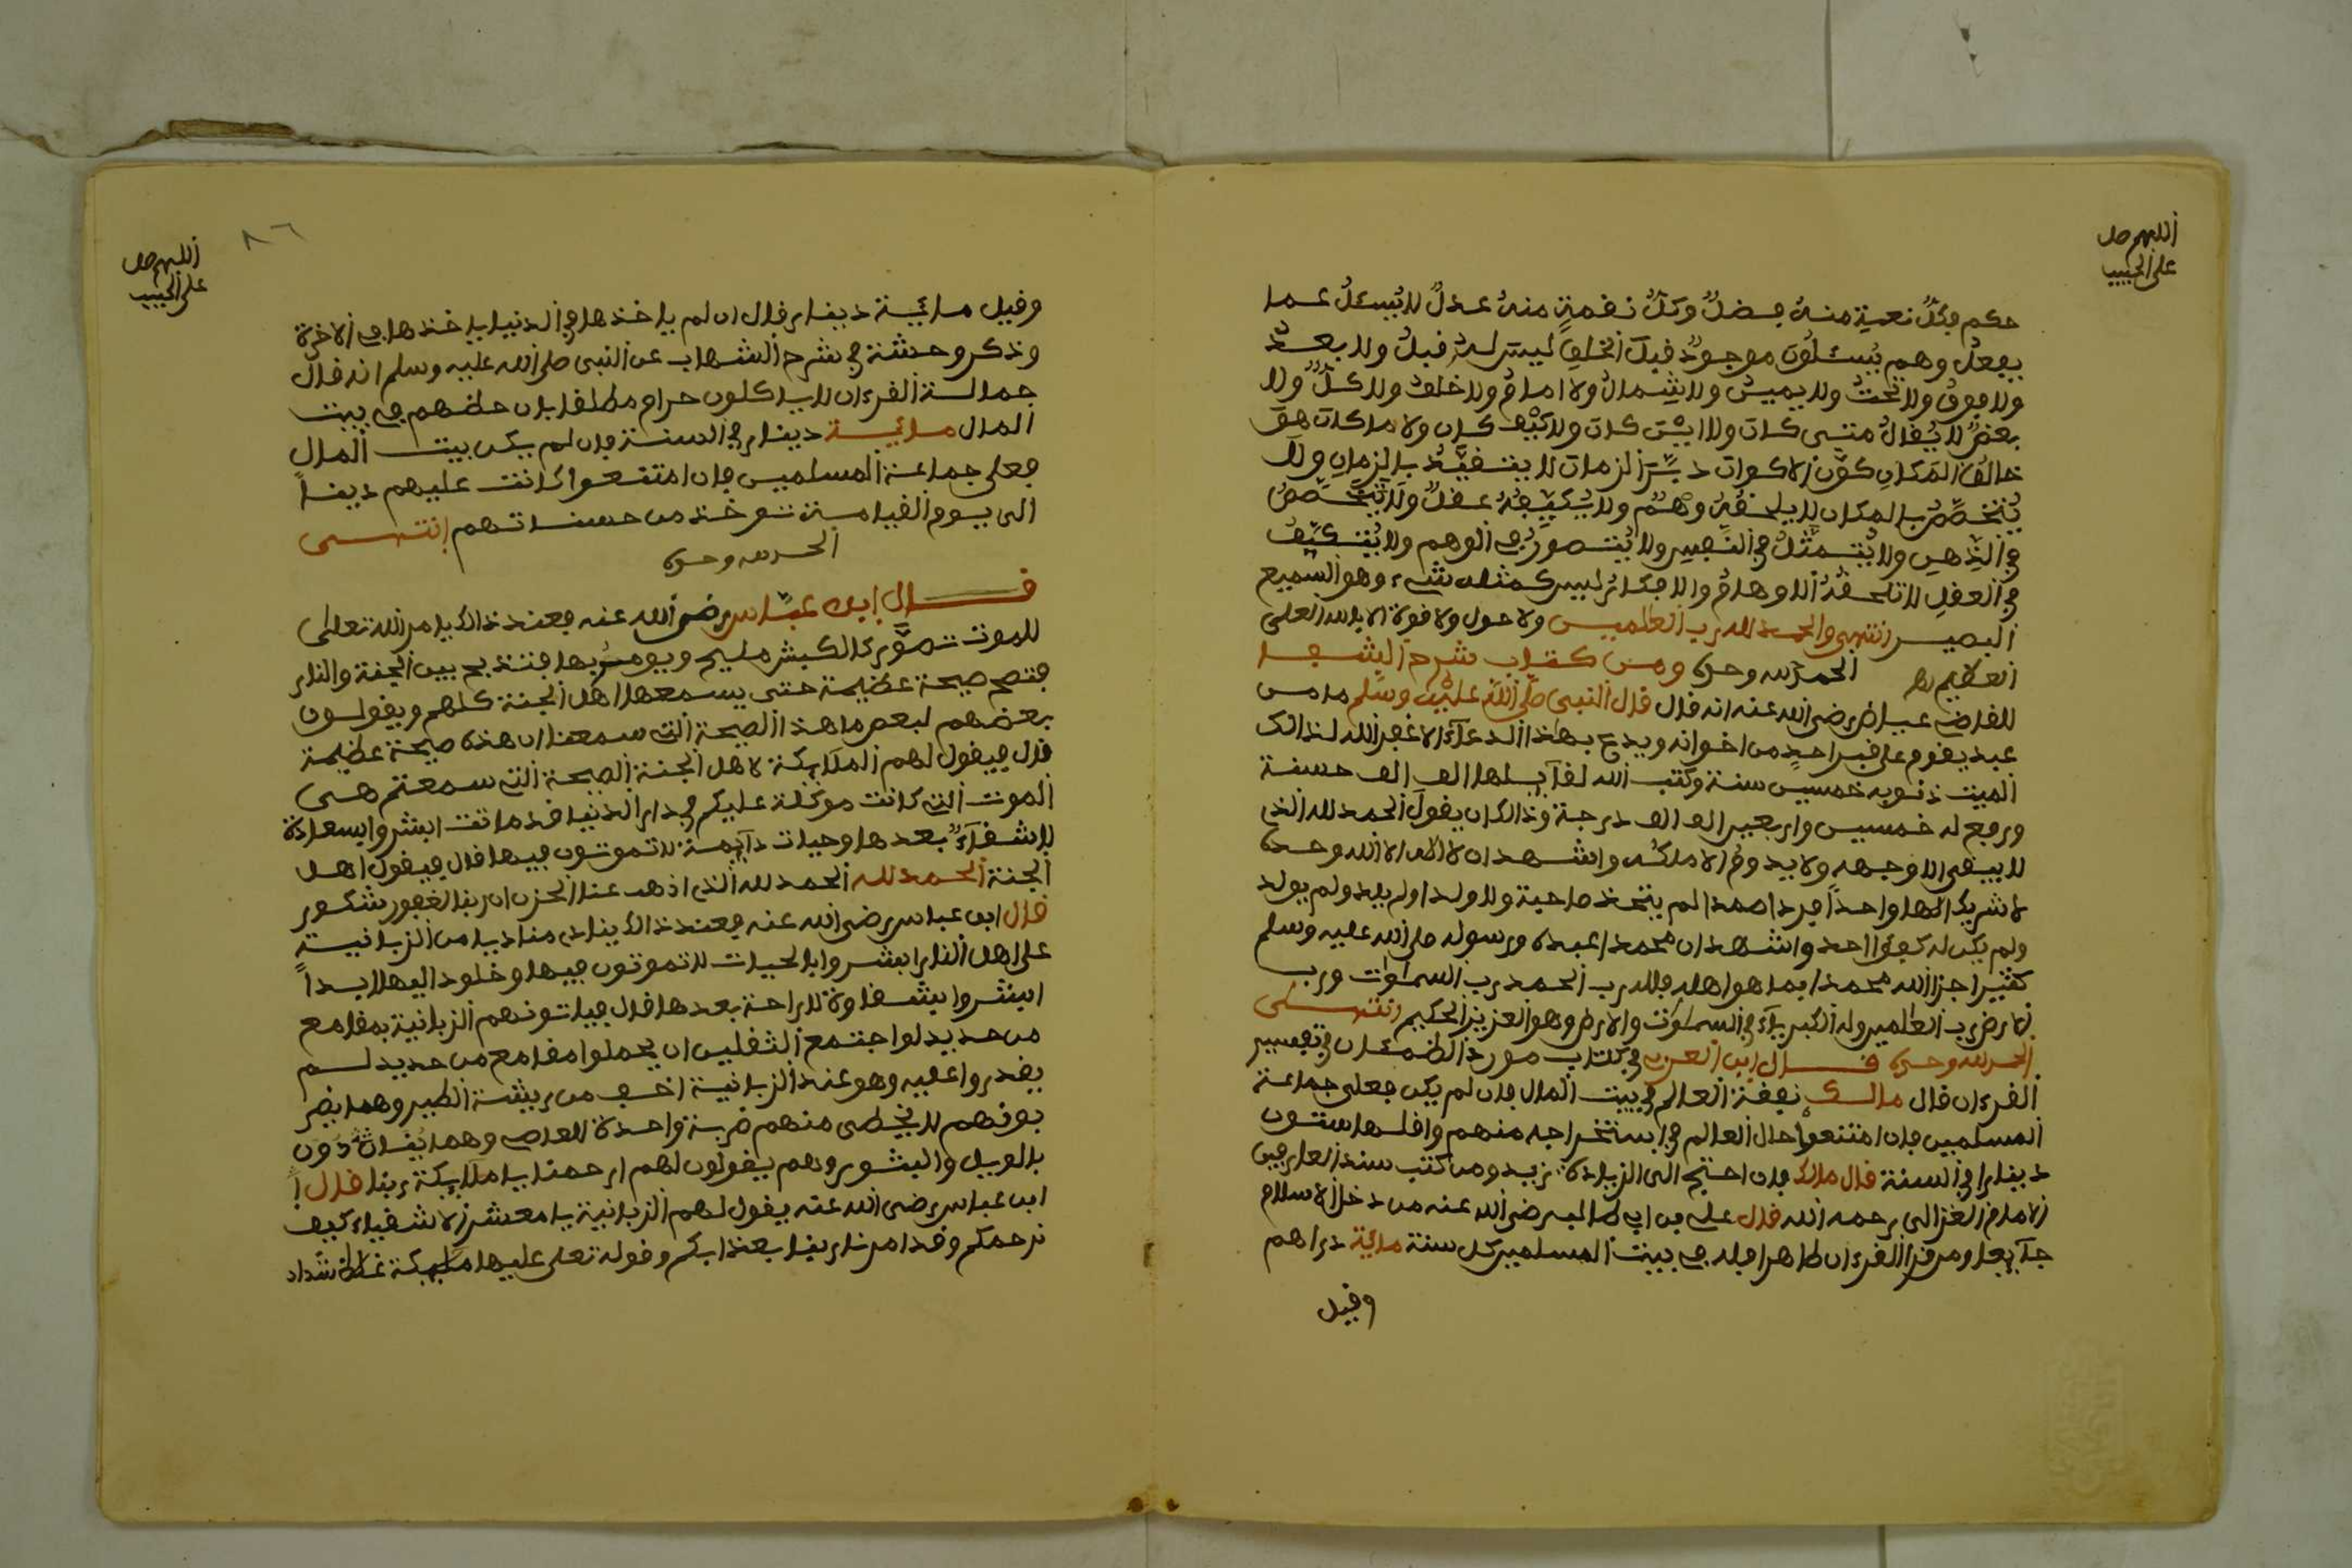 اللهم صل
على الحبيب
حكم فكل نعمة منه فضل وكل نقمة منه عدل لا يسئل عما
يفعل وهم يسئلون موجود قبل الخلق ليس له قبل ولا بعد
ولا فوق ولا تحت ولا يمين ولا شمال ولا امام ولا خلف ولا كل ولا
بعض لا يقال متى كان ولا اين كان ولا كيف كان ولا مكان هو
خالق المكان كون الاكوان دبر الزمان لا يتقيد بالزمان ولا
يتخصص بالمكان لا يلحقه وهم ولا يكيفه عقل ولا يتخصص
في الذهن ولا يتمثل في النفس ولا يتصور في الوهم ولا يتكيف
في العقل لا تلحقه الاوهام والافكار ليس كمثله شيء وهو السميع
البصير انتهى والحمد لله رب العلمين ولا حول ولا قوة الا بالله العلى
العظيم الحمد لله وحده ومن كتاب شرح الشفا
للقاضي عياض رضى الله عنه انه قال قال النبي صلى الله عليه وسلم ما من
عبد يقوم على قبر احد من اخوانه ويدع بهذا الدعاء الا غفر الله لذالك
الميت ذنوبه خمسين سنة وكتب الله لقايلها الف الف حسنة
ورفع له خمسين واربعين الف الف درجة وذالك ان يقول الحمد لله الذى
لا يبقى الا وجهه ولا يدوم الا ملكه واشهد ان لا اله الا الله وحده
لا شريك له الها واحدا فردا صمدا لم يتخذ صاحبة ولا ولدا ولم يلد ولم يولد
ولم يكن له كفوا احد واشهد ان محمدا عبده ورسوله صلى الله عليه وسلم
كثيرا جزا الله محمدا بما هو اهله فلله رب الحمد رب السماوات ورب
الارض رب العلمين وله الكبرياء في السماوات والارض وهو العزيز الحكيم انتهى
الحمد لله وحده قال ابن العربي في كتاب مورد الظمئان في تفسير
القرءان قال مالك نفقة العالم في بيت المال فان لم يكن فعلى جماعة
المسلمين فان امتنعوا حال العالم في استخراجه منهم واقلها ستون
دينارا في السنة قال مالك فان احتيج الى الزيادة زيد ومن كتب سند العارفين
الامام الغزالى رحمه الله قال على بن ابي طالب رضى الله عنه من دخل الاسلام
طايعا ومن قرا القرءان ظاهرا فله في بيت المسلمين كل سنة مائة دراهم
وقيل
اللهم صل
على الحبيب
٨٦
وقيل مائة دينار فقال ان لم ياخذها في الدنيا ياخذها في الاخرة
وذكر وحشنة في شرح الشهاب عن النبي صلى الله عليه وسلم انه قال
حمالة القرءان لا ياكلون حرام مطلقا بان حظهم في بيت
المال مائة دينار في السنة فان لم يكن بيت المال
فعلى جماعة المسلمين فان امتنعوا كانت عليهم دينا
الى يوم القيامة تؤخذ من حسناتهم انتهى
الحمد لله وحده
قال ابن عباس رضى الله عنه فعند ذالك يامر الله تعلى
للموت تصور كالكبش مليح ويومر بها فتذبح بين الجنة والنار
فتصح صيحة عظيمة حتى يسمعها اهل الجنة كلهم ويقولون
بعضهم لبعض ما هذا الصيحة التى سمعنا ان هذه صيحة عظيمة
قال فيقول لهم الملايكة لاهل الجنة الصيحة التى سمعتم هى
الموت التى كانت موكلة عليكم في دار الدنيا قد ماتت ابشروا بسعادة
لا شقاء بعدها وحيات دايمة لا تموتون فيها قال فيقول اهل
الجنة الحمد لله الحمد لله الذى اذهب عنا الحزن ان ربنا لغفور شكور
قال ابن عباس رضى الله عنه فعند ذالك ينادى مناديا من الزبانية
على اهل النار ابشروا بالحيات لا تموتون فيها وخلود اليها ابدا
ابشروا بشقاوة لا راحة بعدها قال فياتونهم الزبانية بمقامع
من حديد لو اجتمع الثقلين ان يحملوا مقامع من حديد لم
يقدروا عليه وهو عند الزبانية اخف من ريشة الطير وهما يضر
بونهم لا يخطى منهم ضربة واحدة للعاصى وهما ينادون
بالويل والبثور وهم يقولون لهم ارحمنا يا ملايكة ربنا قال
ابن عباس رضى الله عنه يقول لهم الزبانية يا معشر الاشقياء كيف
نرحمكم وقد امرنا ربنا بعذابكم وقوله تعلى عليها ملايكة غلاظ شداد